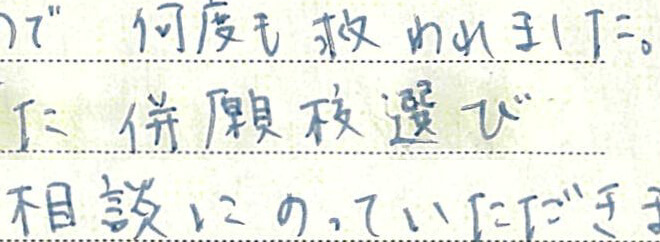 で 何度も救われました。
た 併願校選び
相談にのっていただきま